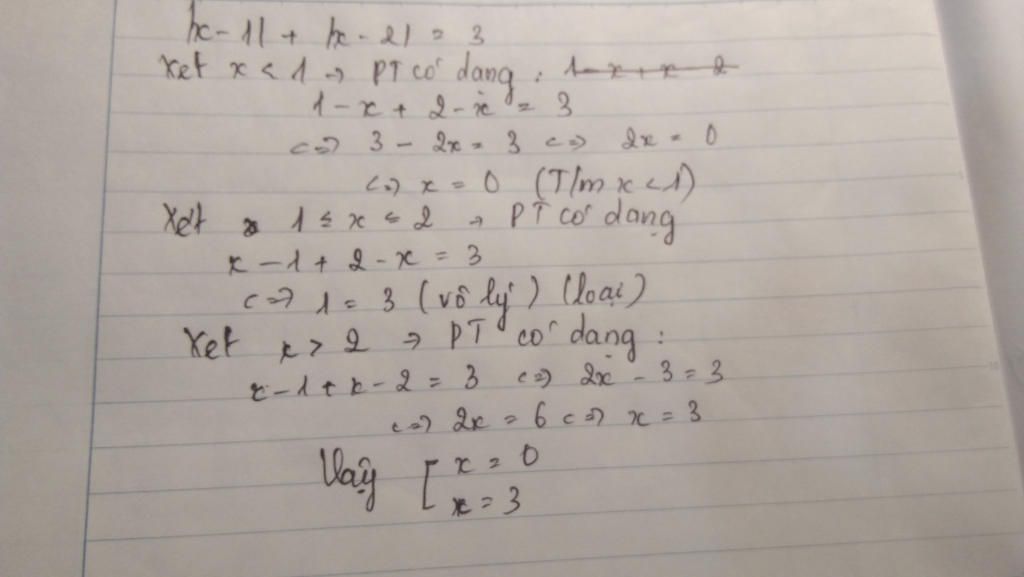 |x-1| + |x-2| = 3
Xét x < 1 → PT có dạng : 1-x+x-2
1-x + 2-x = 3
<=> 3 - 2x = 3 <=> 2x = 0
<=> x = 0 (T/m x<1)
Xét 1 ≤ x ≤ 2 → PT có dạng
x-1+2-x = 3
<=> 1 = 3 (vô lý) (loại)
Xét x > 2 → PT có dạng :
x-1+x-2 = 3 <=> 2x - 3 = 3
<=> 2x = 6 <=> x = 3
Vậy [ x = 0
x = 3